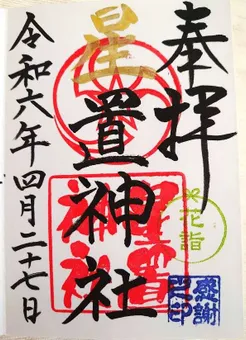 奉拝
星置神社
令和六年四月二十七日
星置
神社
花詣
感謝